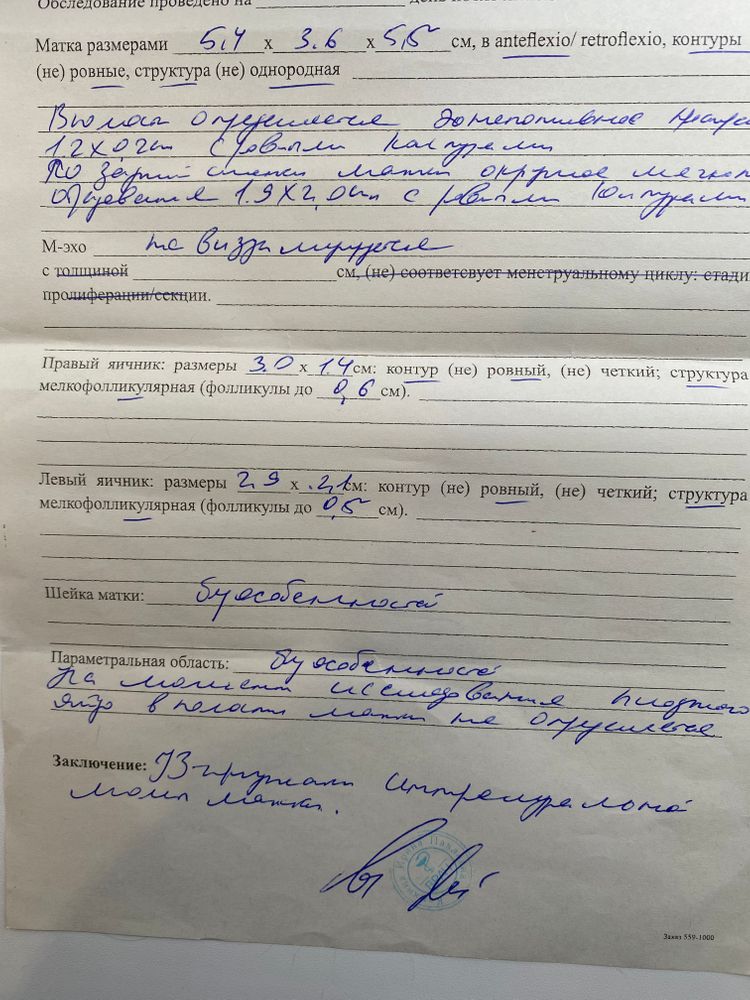 Обследование проведено на
Матка размерами 5,4 х 3.6 х 5,5 см, в anteflexio/ retroflexio, контуры
(не) ровные, структура (не) однородная
определяется
с ровными контурами
По задней стенке матки округлое
образование 1.9х2,0см с ровными контурами
М-эхо не визуализируется
с толщиной см, (не) соответсвует менструальному циклу: стади
пролиферации/секции.
Правый яичник: размеры 3.0 х 1.4 см: контур (не) ровный, (не) четкий; структура
мелкофолликулярная (фолликулы до 0,6 см).
Левый яичник: размеры 2,9 х 2,1 см: контур (не) ровный, (не) четкий; структура
мелкофолликулярная (фолликулы до 0,5 см).
Шейка матки: б/особенностей
Параметральная область: б/особенностей
На момент исследования плодного
яйцо в полости матки не определяется
Заключение: УЗ-признаки интрамуральной
миомы матки.
Заказ 559-1000